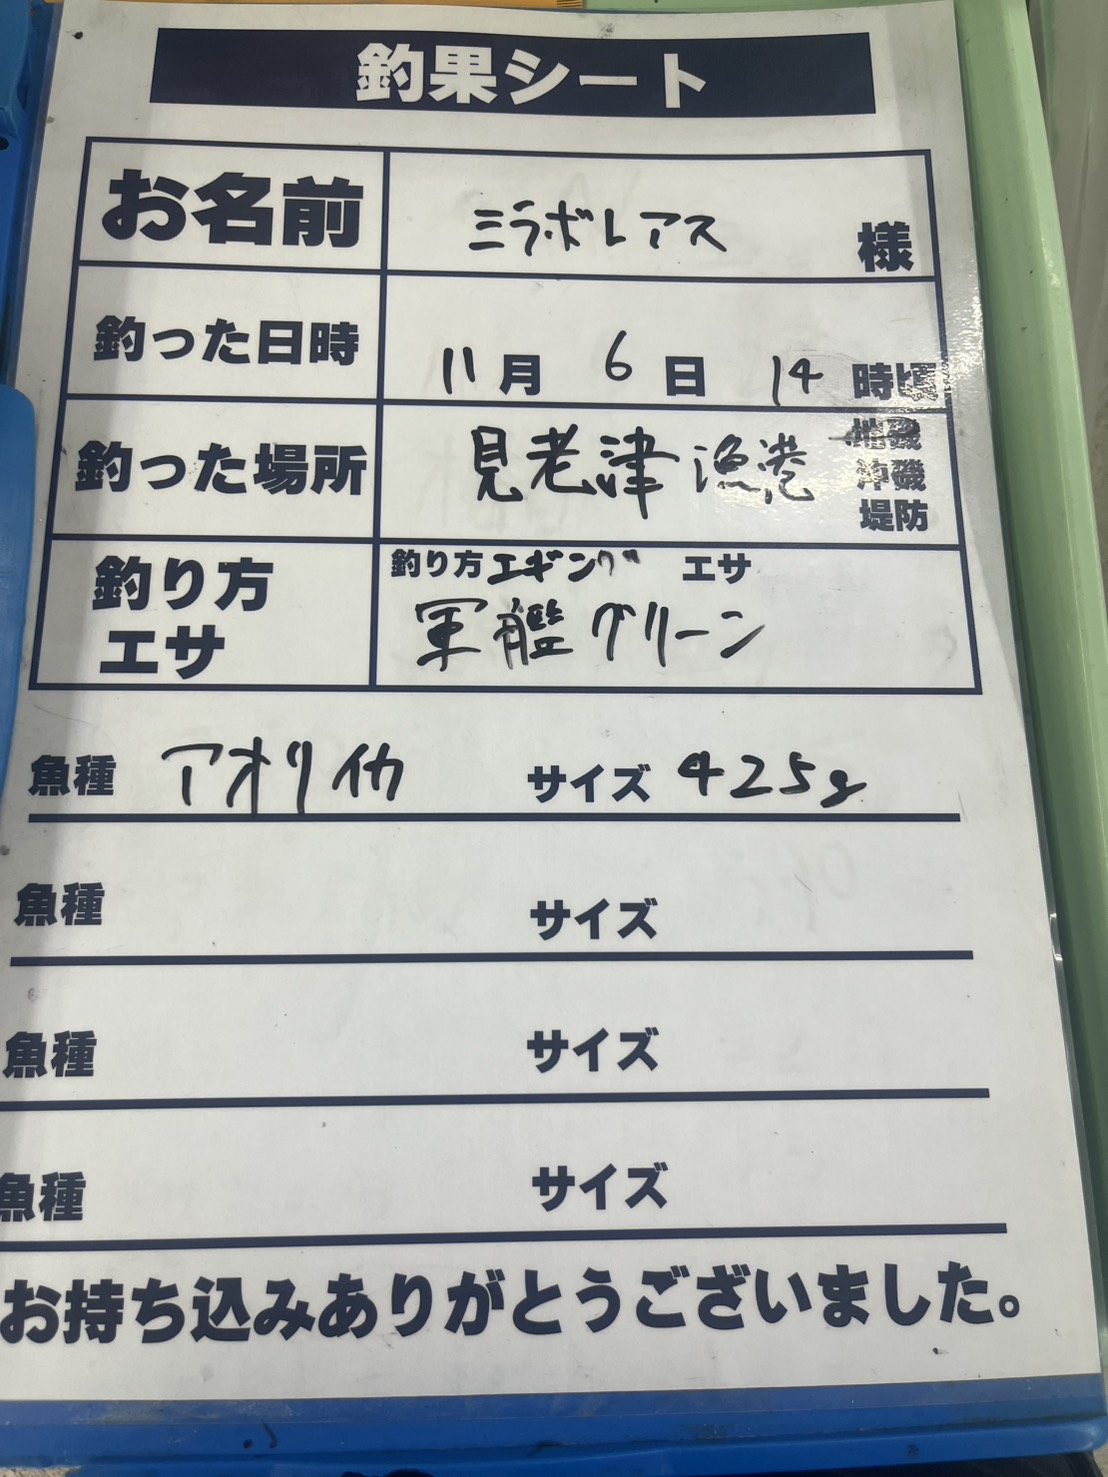 釣果シート
お名前 ミラボレアス 様
釣った日時 11月 6日 14時頃
釣った場所 見老津漁港 地磯
沖磯
堤防
釣り方 釣り方 エギング エサ
エサ 軍艦グリーン
魚種 アオリイカ サイズ 425g
魚種 サイズ
魚種 サイズ
魚種 サイズ
お持ち込みありがとうございました。